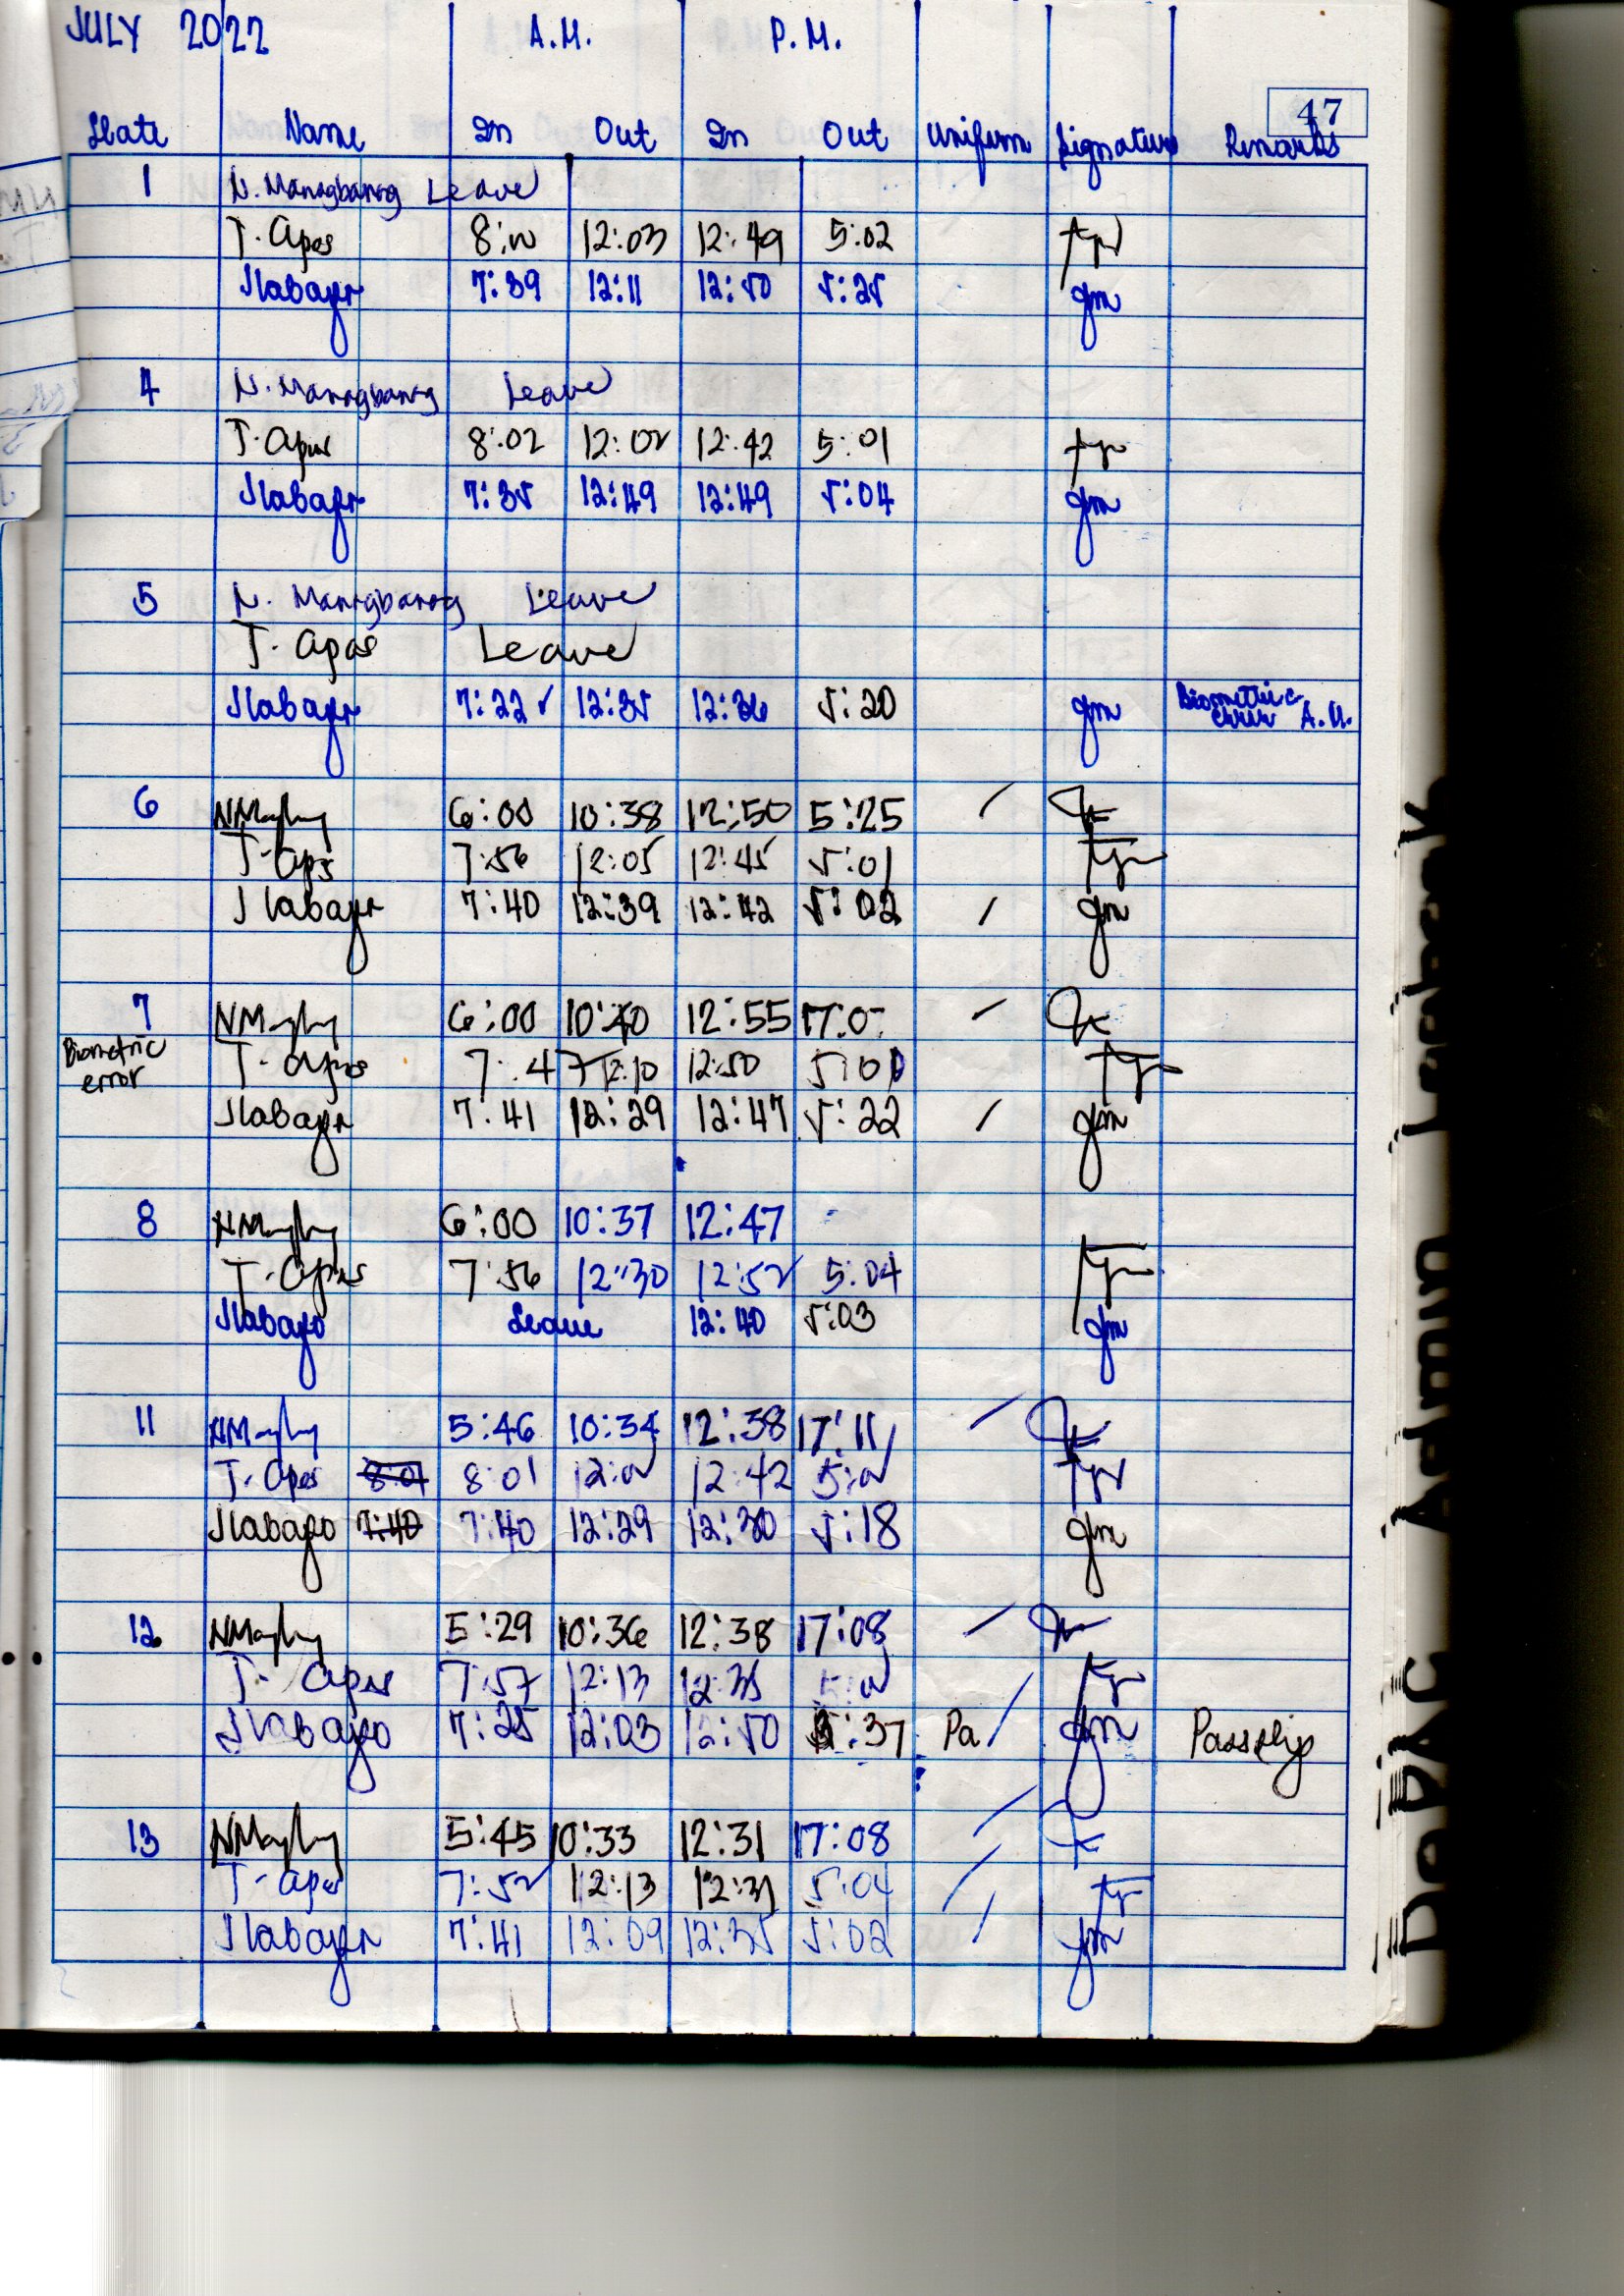 JULY 2022 A.M. P.M.
47
Date Name In Out In Out Uniform Signature Remarks
1 N. Managbanag Leave
T. Apas 8:00 12:03 12:49 5:02
Jlabajo 7:39 12:11 12:50 5:25
4 N. Managbanag Leave
T. Apas 8:02 12:02 12:42 5:01
Jlabajo 7:35 12:49 12:49 5:04
5 N. Managbanag Leave
T. Apas Leave
Jlabajo 7:22 ✓ 12:35 12:36 5:20 Biometric error A.M.
6 6:00 10:38 12:50 5:25 /
T. Apas 7:56 12:05 12:45 5:01
Jlabajo 7:40 12:39 12:42 5:02 /
7 6:00 10:40 12:55 /
Biometric error T. Apas 7:47 12:10 12:50
Jlabajo 7:41 12:29 12:47 5:22 /
8 6:00 10:37 12:47
T. Apas 7:56 12:30 12:52 5:04
Jlabajo Leave 12:40 5:03
11 5:46 10:34 12:38 17:11 /
T. Apas 8:01 8:01 12:42
Jlabajo 7:40 7:40 12:29 12:30 5:18
12 5:29 10:36 12:38 17:08 /
T. Apas 7:57 12:13 12:35 /
Jlabajo 7:25 12:03 12:50 :37 Pa / Passslip
13 5:45 10:33 12:31 17:08 /
T. Apas 7:52 12:13 12:31 5:04 /
Jlabajo 7:41 12:09 12:35 5:02 /
DePAC Admin Logbook